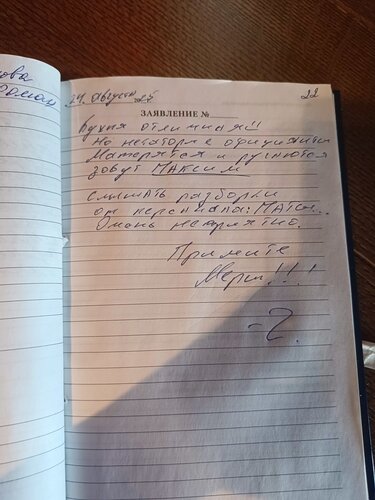 ова
Роман
24. августа 25
22
ЗАЯВЛЕНИЕ №
Кухня отличная!!
Но некоторые официянты
Матерятся и ругаются
зовут МАКСИМ
слышать разборки
от персонала: МАТЫ...
Очень неприятно.
Примите
Меры!!!